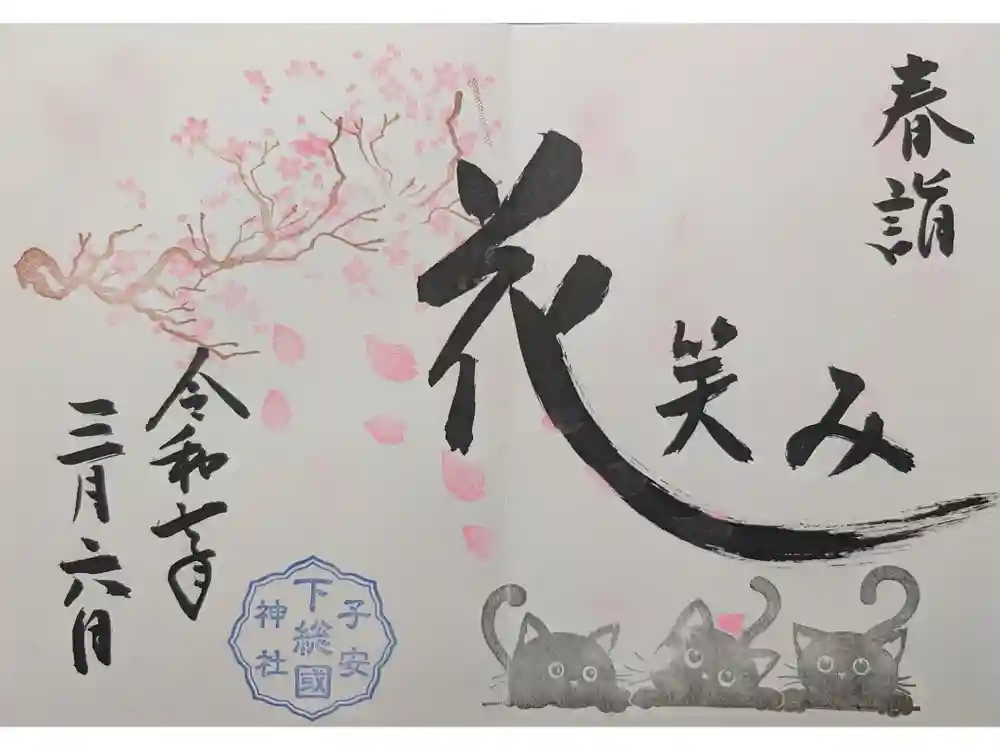 春詣
花笑み
令和年
三月六日
下総國
子安
神社